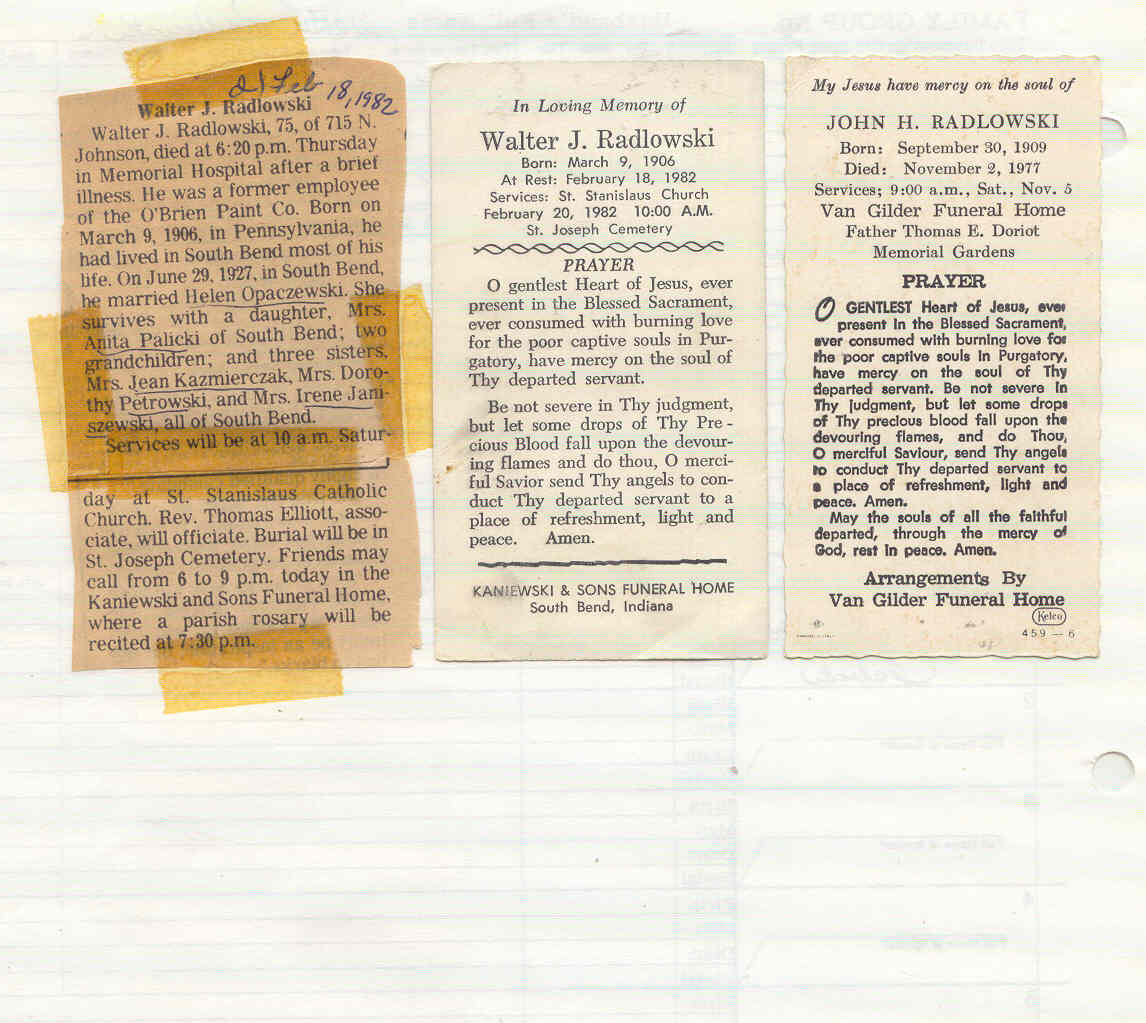 d/ Feb 18, 1982
Walter J. Radlowski
Walter J. Radlowski, 75, of 715 N.
Johnson, died at 6:20 p.m. Thursday
in Memorial Hospital after a brief
illness. He was a former employee
of the O'Brien Paint Co. Born on
March 9, 1906, in Pennsylvania, he
had lived in South Bend most of his
life. On June 29, 1927, in South Bend,
he married Helen Opaczewski. She
survives with a daughter, Mrs.
Anita Palicki of South Bend; two
grandchildren; and three sisters,
Mrs. Jean Kazmierczak, Mrs. Doro-
thy Petrowski, and Mrs. Irene Jani-
szewski, all of South Bend.
Services will be at 10 a.m. Satur-
day at St. Stanislaus Catholic
Church. Rev. Thomas Elliott, asso-
ciate, will officiate. Burial will be in
St. Joseph Cemetery. Friends may
call from 6 to 9 p.m. today in the
Kaniewski and Sons Funeral Home,
where a parish rosary will be
recited at 7:30 p.m.
In Loving Memory of
Walter J. Radlowski
Born: March 9, 1906
At Rest: February 18, 1982
Services: St. Stanislaus Church
February 20, 1982 10:00 A.M.
St. Joseph Cemetery
PRAYER
O gentlest Heart of Jesus, ever
present in the Blessed Sacrament,
ever consumed with burning love
for the poor captive souls in Pur-
gatory, have mercy on the soul of
Thy departed servant.
Be not severe in Thy judgment,
but let some drops of Thy Pre-
cious Blood fall upon the devour-
ing flames and do thou, O merci-
ful Savior send Thy angels to con-
duct Thy departed servant to a
place of refreshment, light and
peace. Amen.
KANIEWSKI & SONS FUNERAL HOME
South Bend, Indiana
My Jesus have mercy on the soul of
JOHN H. RADLOWSKI
Born: September 30, 1909
Died: November 2, 1977
Services; 9:00 a.m., Sat., Nov. 5
Van Gilder Funeral Home
Father Thomas E. Doriot
Memorial Gardens
PRAYER
O GENTLEST Heart of Jesus, ever
present in the Blessed Sacrament,
ever consumed with burning love for
the poor captive souls in Purgatory,
have mercy on the soul of Thy
departed servant. Be not severe in
Thy judgment, but let some drops
of Thy precious blood fall upon the
devouring flames, and do Thou,
O merciful Saviour, send Thy angels
to conduct Thy departed servant to
a place of refreshment, light and
peace. Amen.
May the souls of all the faithful
departed, through the mercy of
God, rest in peace. Amen.
Arrangements By
Van Gilder Funeral Home
Kelco
459 — 6